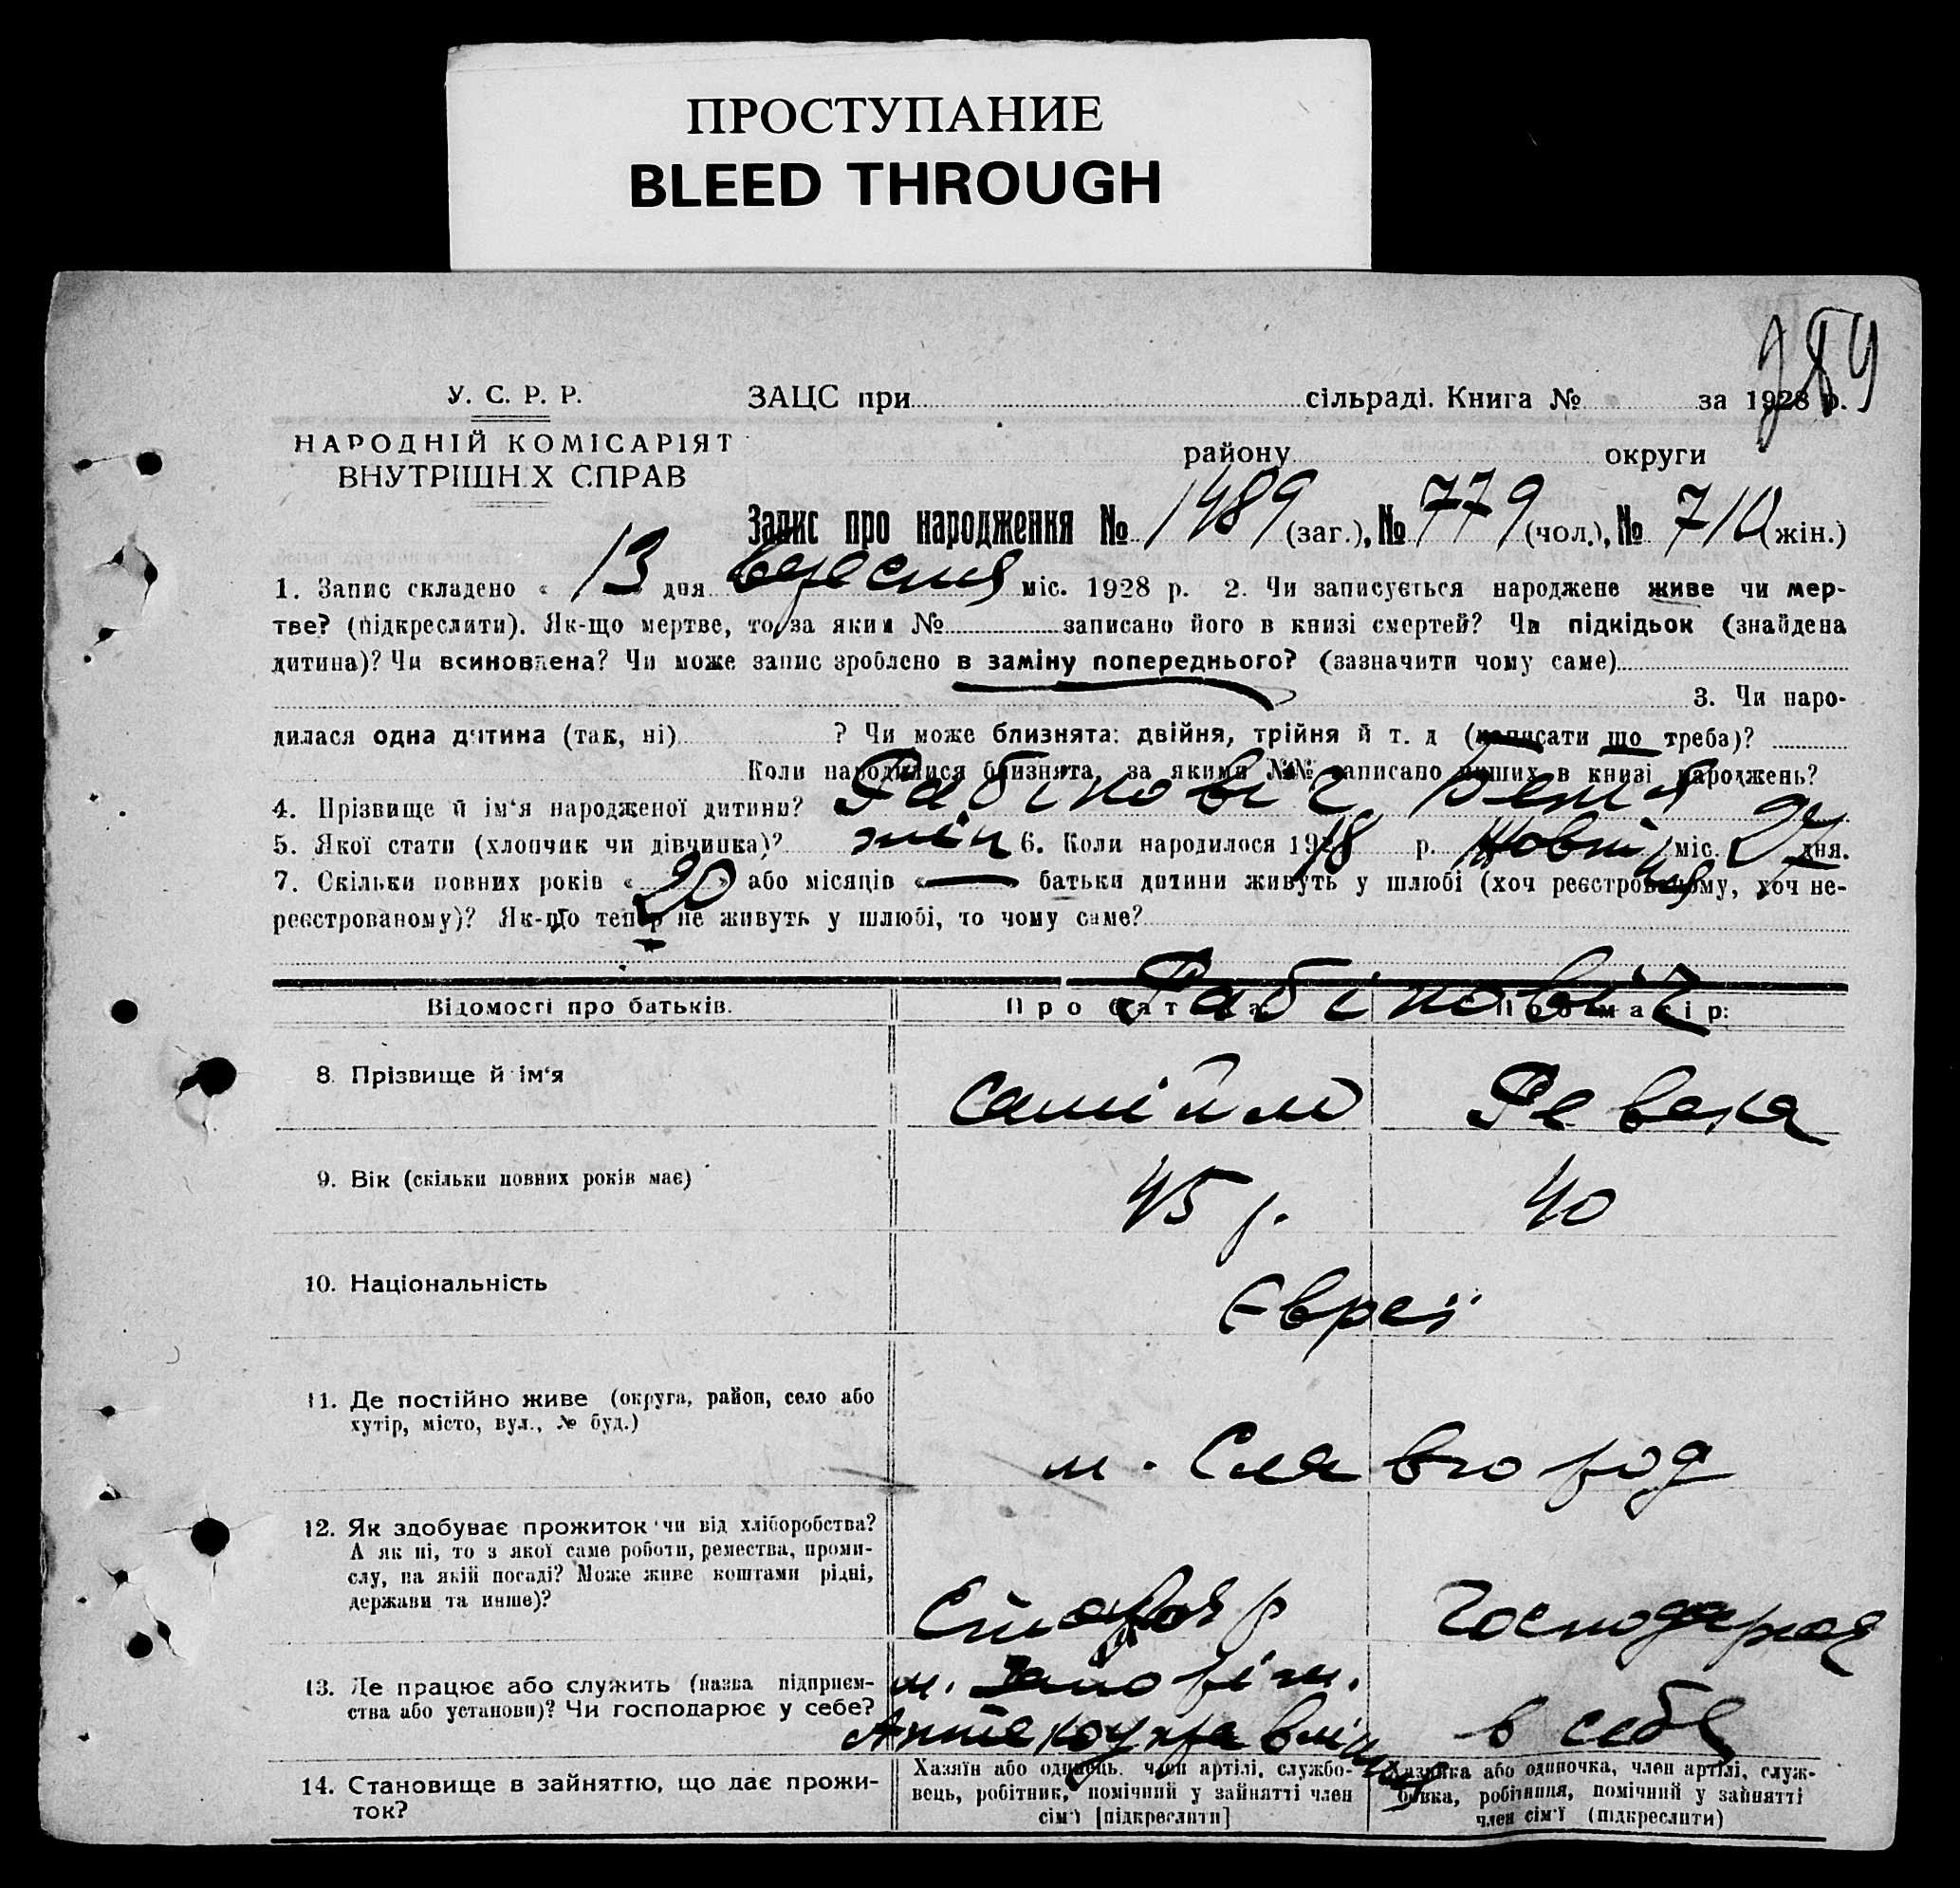 ПРОСТУПАНИЕ
BLEED THROUGH
289
У. С. Р. Р. ЗАЦС при сільраді. Книга № за 1928 р.
НАРОДНІЙ КОМІСАРІЯТ
району округи
ВНУТРІШНІХ СПРАВ
Запис про народження № 1489 (заг.), № 779 (чол.), № 710 (жін.)
1. Запис складено « 13 » дня вересня міс. 1928 р. 2. Чи записується народжене живе чи мер-
тве? (підкреслити). Як-що мертве, то за яким № записано його в книзі смертей? Чи підкідьок (знайдена
дитина)? Чи всиновлена? Чи може запис зроблено в заміну попереднього? (зазначити чому саме)
3. Чи наро-
дилася одна дитина (так, ні) ? Чи може близнята: двійня, трійня й т. д (написати що треба)?
Коли народилися близнята, за якими №№ записано инших в книзі народжень?
4. Прізвище й ім'я народженої дитини? Рабіновіч
5. Якої стати (хлопчик чи дівчинка)? жін 6. Коли народилося 1918 р. Жовтня міс. 24 дня.
7. Скільки повних років « 20 » або місяців « — » батьки дитини живуть у шлюбі (хоч реєстрованому, хоч не-
реєстрованому)? Як-що тепер не живуть у шлюбі, то чому саме?
Рабіновіч
Відомості про батьків. Про батька Про матір:
8. Прізвище й ім'я Самійло Ревека
9. Вік (скільки повних років має) 45 р. 40
10. Національність Євреї
11. Де постійно живе (округа, район, село або
хутір, місто, вул., № буд.)
м. Славгород
12. Як здобуває прожиток чи від хліборобства?
А як ні, то з якої саме роботи, ремества, проми-
слу, на якій посаді? Може живе коштами рідні,
держави та инше)?
Столяр Господарює
13. Де працює або служить (назва підприєм-
ства або установи)? Чи господарює у себе?
м. Запоріж.
в себе
14. Становище в зайняттю, що дає прожи-
ток?
Хазяїн або одинець, член артілі, службо-
вець, робітник, помічний у зайнятті член
сім'ї [підкреслити]
Хазяйка або одиночка, член артілі, служ-
бовка, робітниця, помічний у зайнятті
член сім'ї (підкреслити)